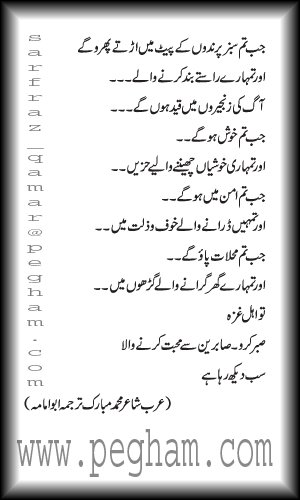 جب تم سبز پرندوں کے پیٹ میں اڑتے پھرو گے
اور تمہارے راستے بند کرنے والے۔۔۔
آگ کی زنجیروں میں قید ہوں گے۔۔۔
جب تم خوش ہو گے۔۔
اور تمہاری خوشیاں چھیننے والے حزیں۔۔
جب تم امن میں ہو گے۔۔
اور تمہیں ڈرانے والے خوف و ذلت میں۔۔
جب تم محلات پاؤ گے۔۔
اور تمہارے گھر گرانے والے گڑھوں میں۔۔
تو اہل غزہ
صبر کرو۔ صابرین سے محبت کرنے والا
سب دیکھ رہا ہے
(عرب شاعر محمد مبارک ترجمہ ابو امامہ)
sarfraz_qamar@pegham.com
www.pegham.com